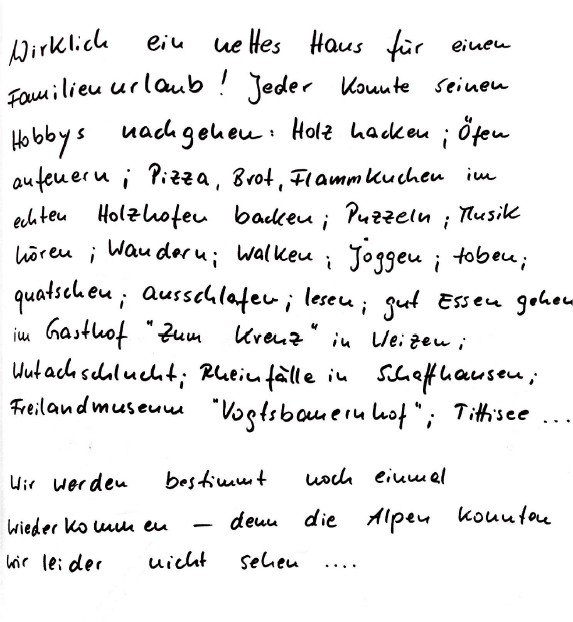 Wirklich ein nettes Haus für einen
Familienurlaub! Jeder konnte seinen
Hobbys nachgehen: Holz hacken; Öfen
anfeuern; Pizza, Brot, Flammkuchen im
echten Holzhofen backen; Puzzeln; Musik
hören; Wandern; Walken; Joggen; toben;
quatschen; ausschlafen; lesen; gut Essen gehen
im Gasthof "Zum Kreuz" in Weizen;
Wutachschlucht; Rheinfälle in Schaffhausen;
Freilandmuseum "Vogtsbauernhof"; Tittisee ...
Wir werden bestimmt noch einmal
wiederkommen — denn die Alpen konnten
wir leider nicht sehen ....